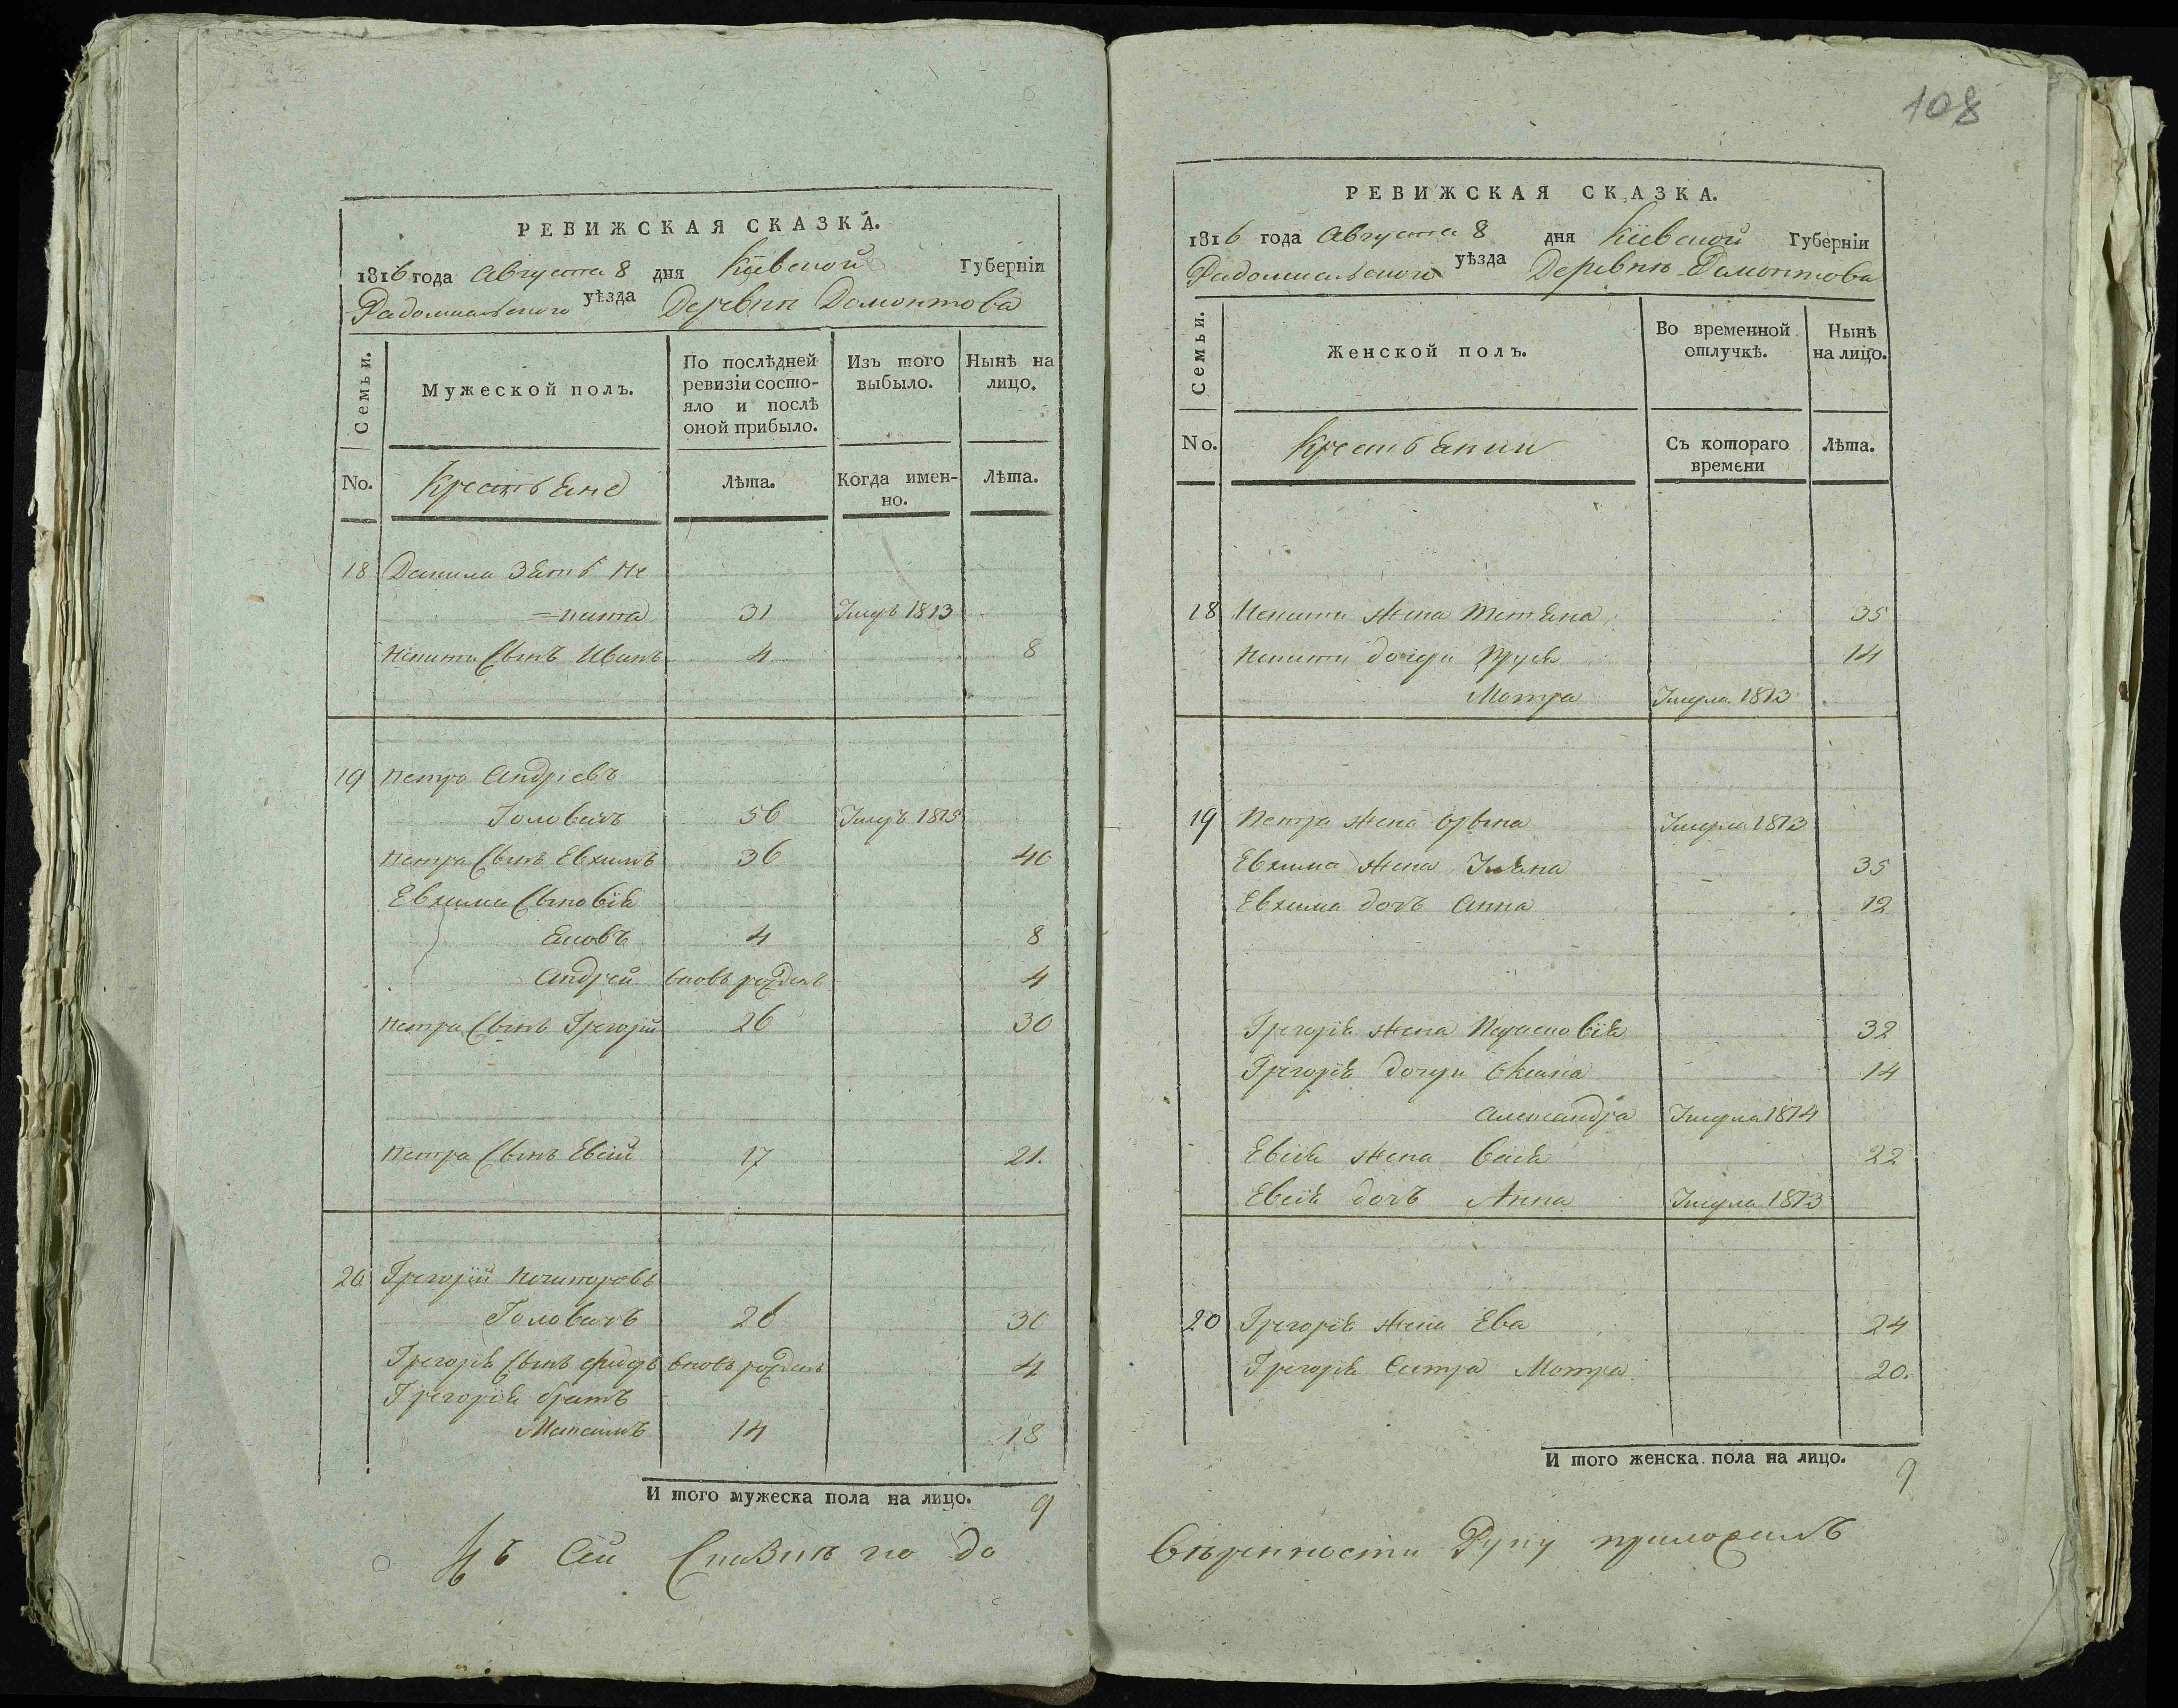 108
РЕВИЖСКАЯ СКАЗКА.
1816 года Августа 8 дня Кіевской Губерніи
Радомысльского уѣзда Деревни Домонтова
Семьи.
Мужеской полъ.
По послѣдней ревизіи состо-
яло и послѣ
оной прибыло.
Изъ того
выбыло.
Нынѣ на
лицо.
No.
Крестьяне
Лѣта.
Когда имен-
но.
Лѣта.
18 Данила Зять Ни
=кита 31 Умеръ 1813
Никиты Сынъ Иванъ 4 8
19 Петро Андріевъ
Головачъ 56 Умеръ 1815
Петра Сынъ Евхимъ 36 40
Евхима Сыновія
Яковъ 4 8
Андрей вновь рожденъ 4
Петра Сынъ Грегорій 26 30
Петра Сынъ Евсій 17 21.
20 Грегорій
Головачъ 26 30
Грегорія Сынъ вновь рожденъ 4
Грегорія братъ
Максимъ 14 18
И того мужеска пола на лицо. 9
Къ Сей Сказкѣ по до
РЕВИЖСКАЯ СКАЗКА.
1816 года Августа 8 дня Кіевской Губерніи
Радомысльского уѣзда Деревни Домонтова
Семьи.
Женской полъ.
Во временной
отлучкѣ.
Нынѣ
на лицо.
No.
Крестьянки
Съ котораго
времени
Лѣта.
18 Никиты жена Тетяна 35
Никиты дочери 14
Мотра Умерла 1813
19 Петра жена Умерла 1813
Евхима жена Уляна 35
Евхима дочь Анна 12
Грегорія жена 32
Грегорія дочери Оксана 14
Александра Умерла 1814
Евсія жена 22
Евсія дочь Анна Умерла 1813
20 Грегорія жена Ева 24
Грегорія Систра Мотра 20.
И того женска пола на лицо. 9
вѣренности Руку приложилъ